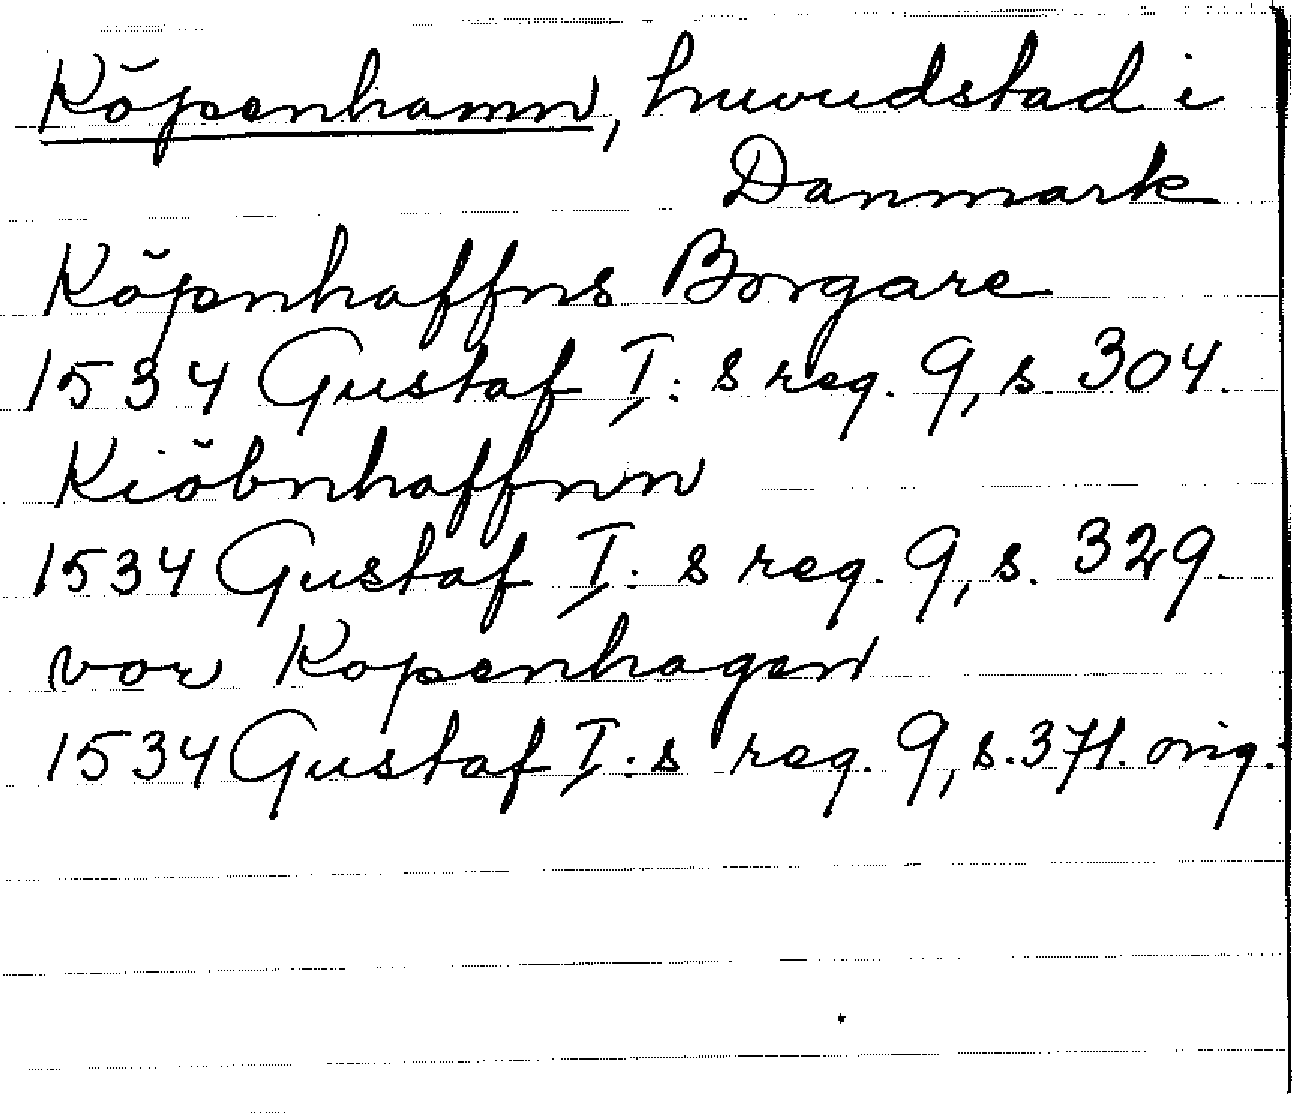 Köpenhamn, huvudstad i
Danmark
Köpnhaffns Borgare
1534 Gustaf I:s reg. 9, s. 304.
Kiöbnhaffnn
1534 Gustaf I:s reg. 9, s. 329.
vor Kopenhagen
1534 Gustaf I:s reg. 9, s. 371. orig.